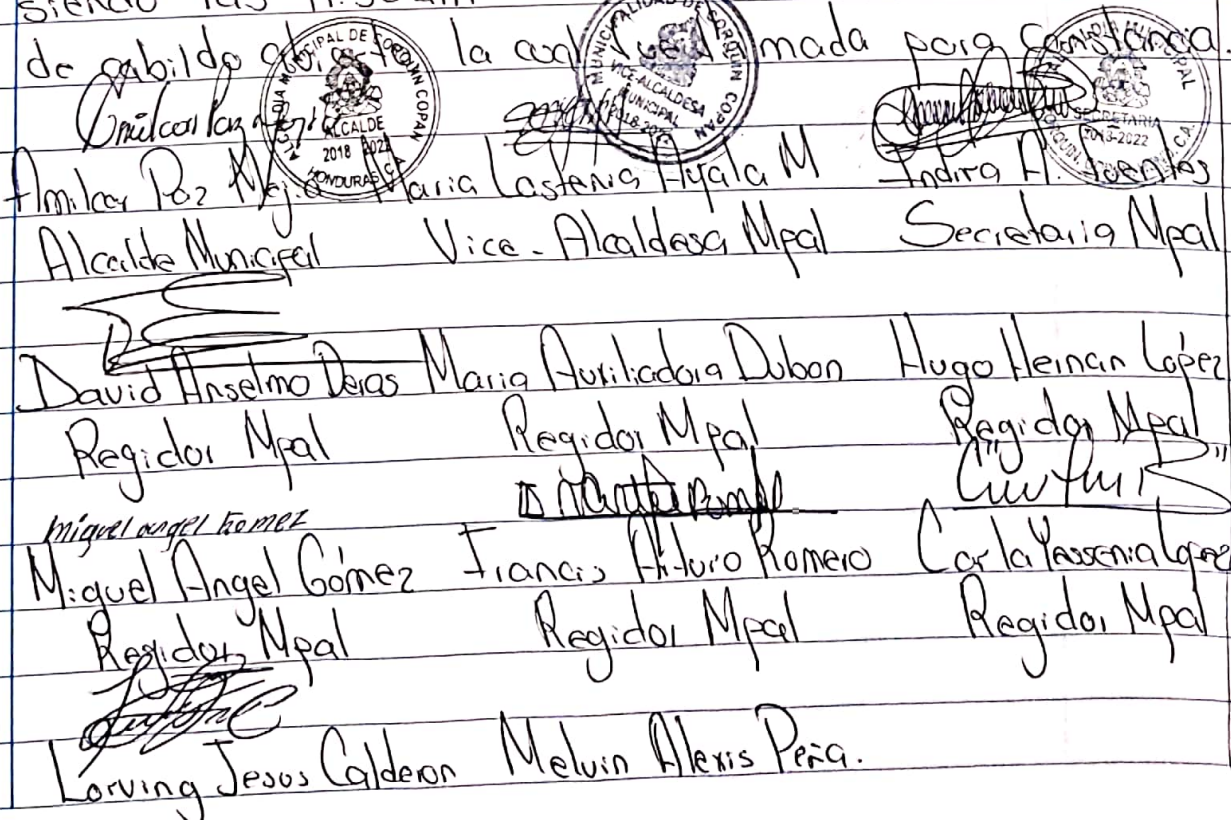 siendo las
de cabildo la cual mada para Constancia
ALCALDIA MUNICIPAL DE CORQUIN COPAN
ALCALDE
2018 2022
HONDURAS C.A.
MUNICIPALIDAD DE CORQUIN COPAN
VICE-ALCALDESA
MUNICIPAL
2018-20
MUNICIPAL
SECRETARIA
2013-2022
Amilcar Paz Mejia Maria Lastenia Ayala M Indira A. Fuentes
Alcalde Municipal Vice-Alcaldesa Mpal Secretaria Mpal
David Anselmo Deras Maria Auxiliadora Dubon Hugo Hernan López
Regidor Mpal Regidor Mpal Regidor Mpal
miguel angel Gomez
Miguel Angel Gómez Francis Arturo Romero Carla Yessenia Lopez
Regidor Mpal Regidor Mpal Regidor Mpal
Lorving Jesus Calderon Melvin Alexis Peña.